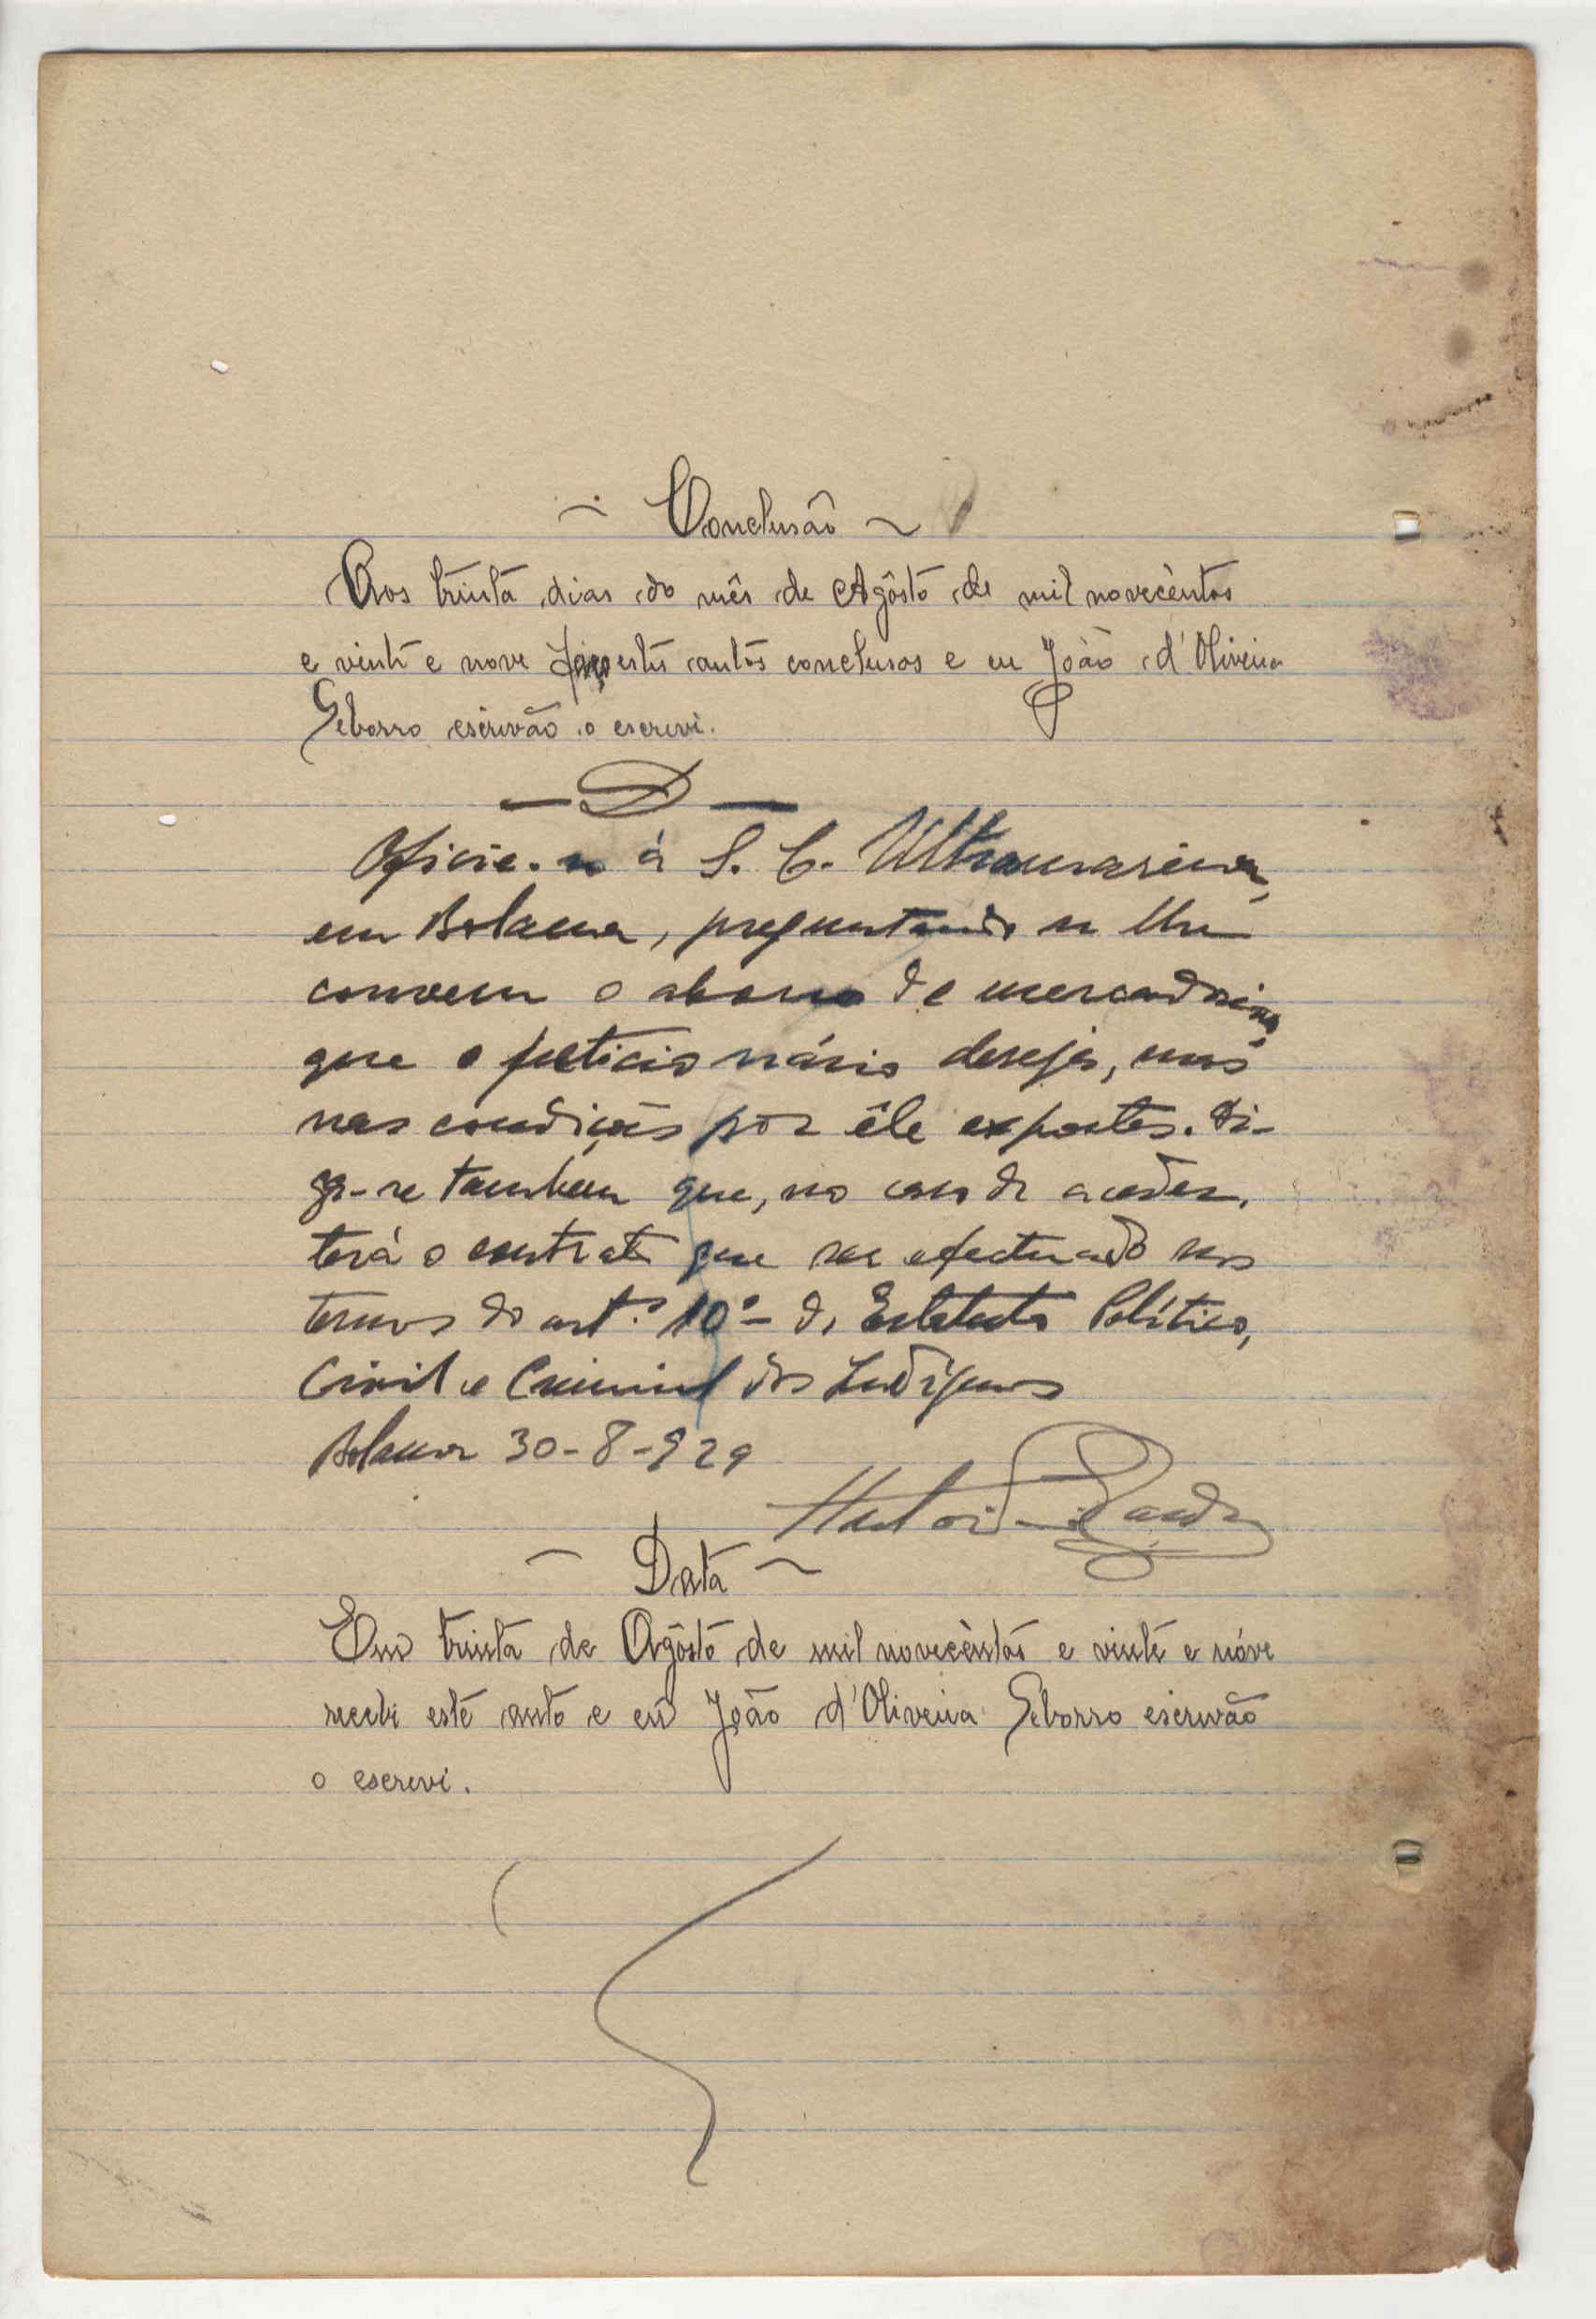 ~ Conclusão ~
Aos trinta dias do mês de Agôsto de mil novecèntos
e vinte e nove faço estes autos conclusos e eu João d'Oliveira
Seborro escrivão o escrevi.
— D —
Oficie-se à S. C. Ultramarina,
em Bolama, preguntando se lhe
convem o abono de mercadorias
que o peticionário deseja, mas
nas condições por êle expostas. Di-
ga-se tambem que, no caso de aceder,
terá o contrato que ser efectuado nos
termos do art.º 10º- do Estatuto Político,
Civil e Criminal dos Indígenas
Bolama 30-8-929
~ Data ~
Em trinta de Agôsto de mil novecèntos e vinte e nóve
recebi este auto e eu João d'Oliveira Seborro escrivão
o escrevi.